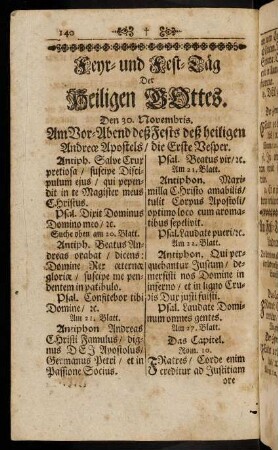 140
Feyr- und Fest-Täg
Der
Heiligen GOttes.
Den 30. Novembris.
Am Vor-Abend deß Fests deß heiligen
Andreæ Apostels / die Erste Vesper.
Antiph. Salve Crux
pretiosa / suscipe Disci-
pulum ejus / qui pepen-
dit in te Magister meus
Christus.
Psal. Dixit Dominus
Domino meo / &c.
Suche oben am 20. Blatt.
Antiph. Beatus An-
dreas orabat / dicens:
Domine Rex æternæ
gloriæ / suscipe me pen-
dentem in patibulo.
Psal. Confitebor tibi
Domine / &c.
Am 21. Blatt.
Antiphon Andreas
Christi Famulus / dig-
nus DEI Apostolus /
Germanus Petri / et in
Passione Socius.
Psal. Beatus vir / &c.
Am 21. Blatt.
Antiphon. Maxi-
milla Christo amabilis /
tulit Corpus Apostoli /
optimo loco cum aroma-
tibus sepelivit.
Psal. Laudate pueri / &c.
Am 22. Blatt.
Antiphon. Qui per-
quebantur Justum / de-
mersisti nos Domine in
inferno / et in ligno Cru-
cis Dux justi fuisti.
Psal. Laudate Domi-
num omnes gentes.
Am 27. Blatt.
Das Capitel.
Rom. 10.
FRatres / Corde enim
creditur ad Justitiam
ore